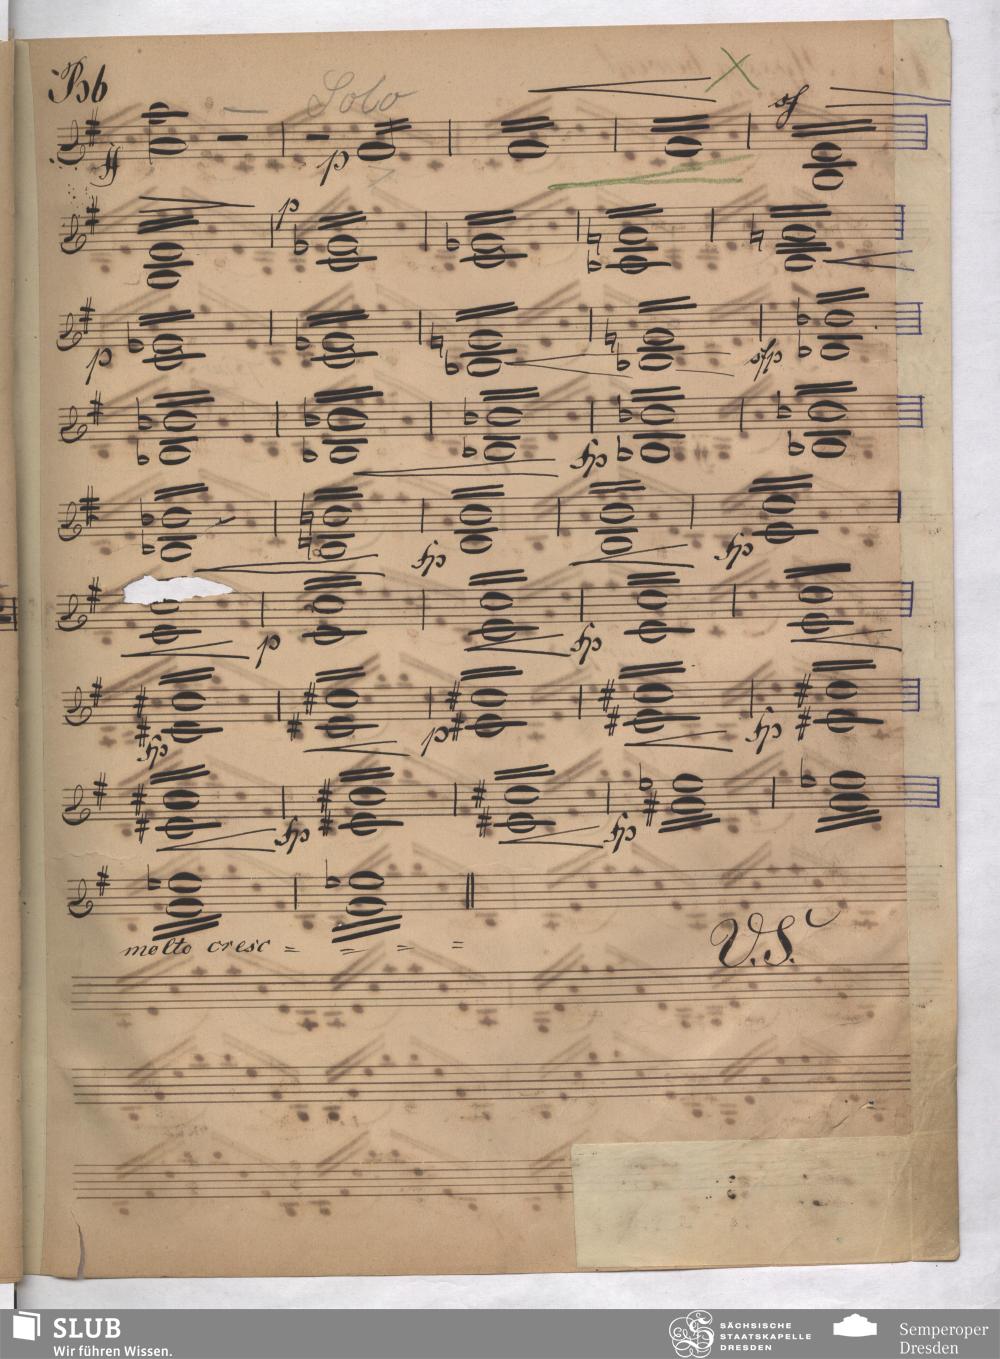 Solo
ff
p
sf
p
p
sfp
fp
fp
fp
p
fp
fp
p
fp
fp
fp
molto cresc = = = =
V.S.
SLUB
Wir führen Wissen.
SÄCHSISCHE
STAATSKAPELLE
DRESDEN
Semperoper
Dresden